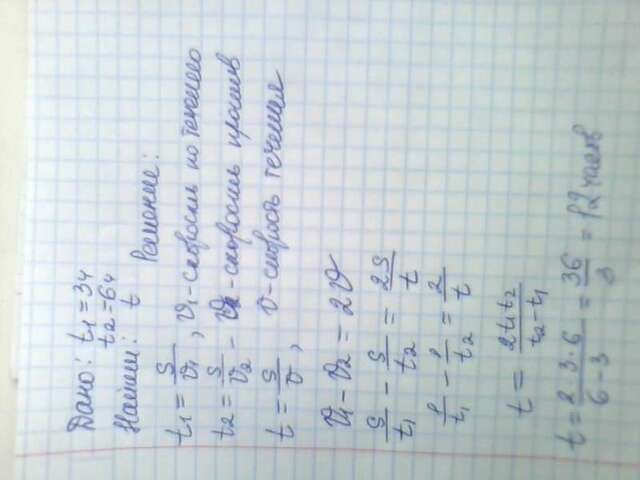 Дано: t₁ = 3ч
t₂ = 6ч
Найти: t
Решение:
t₁ = S/v₁, v₁ - скорость по течению
t₂ = S/v₂ - v₂ - скорость против
t = S/v, v - скорость течения
v₁ - v₂ = 2v
S/t₁ - S/t₂ = 2S/t
1/t₁ - 1/t₂ = 2/t
t = 2t₁t₂/(t₂ - t₁)
t = 2·3·6/(6-3) = 36/3 = 12 часов